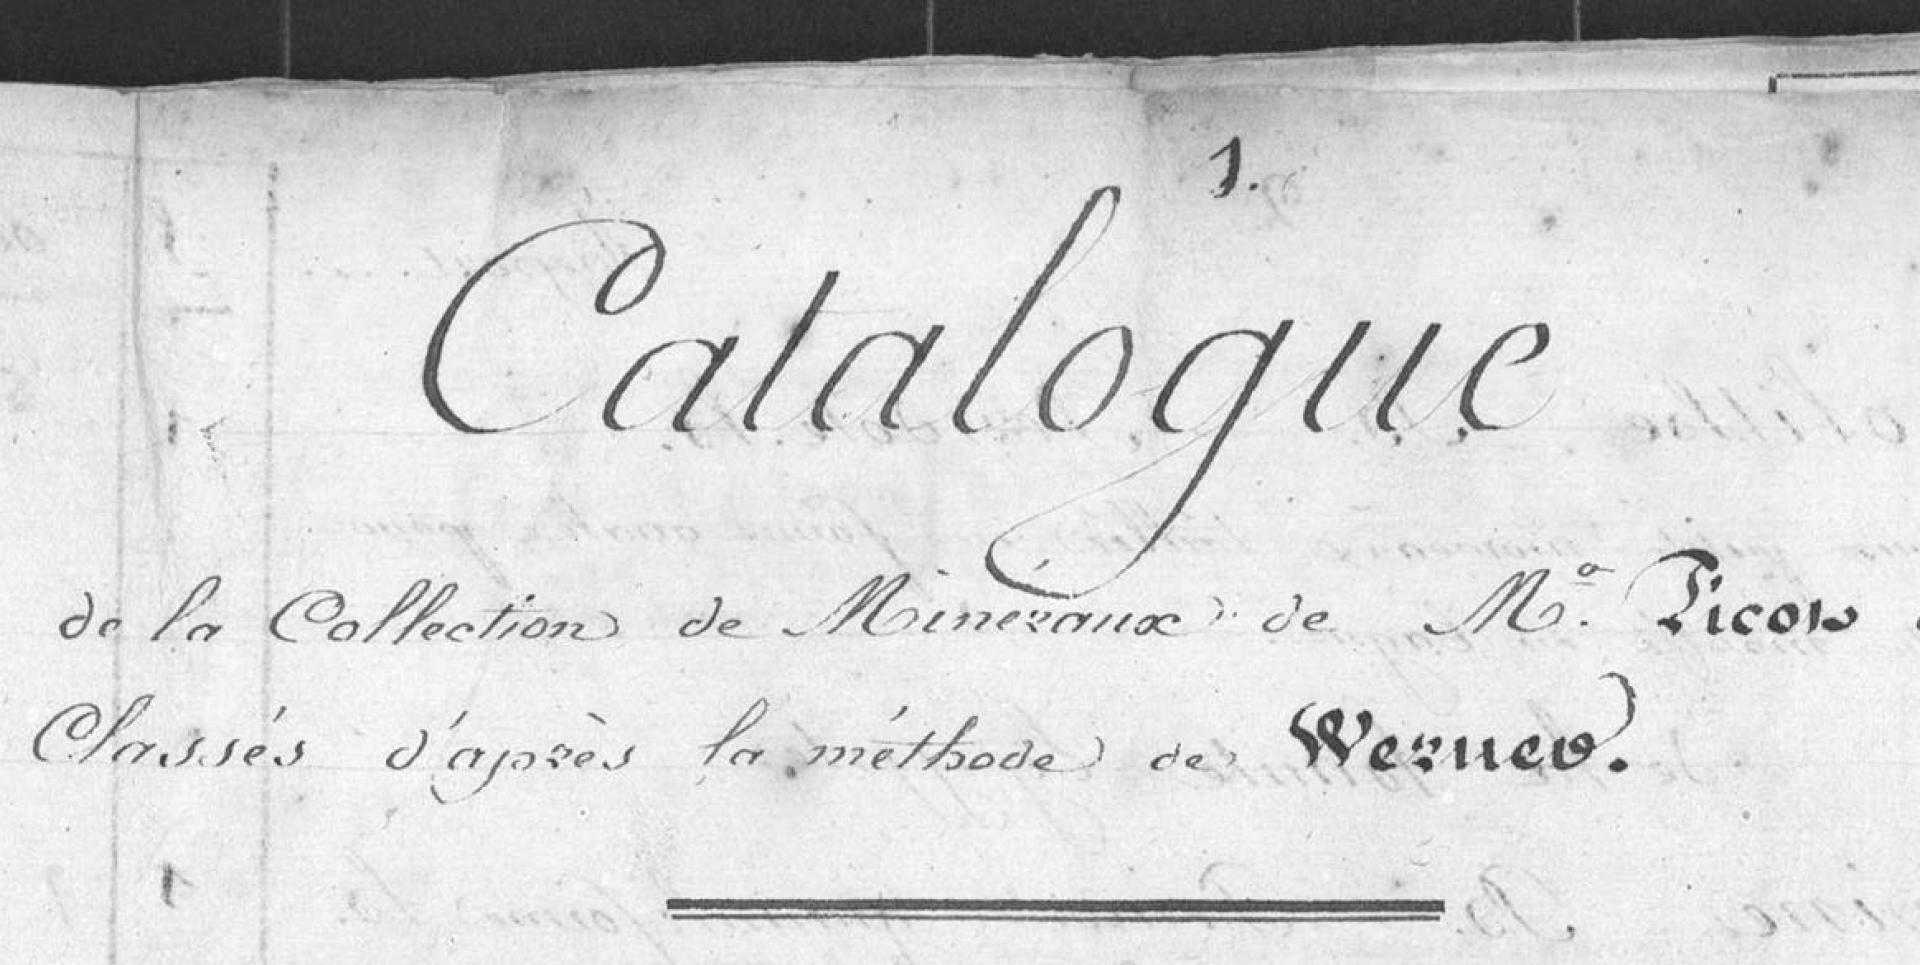 1.
Catalogue
de la Collection de Minéraux de Mr. Picow
Classés d'après la méthode de Werner.
1